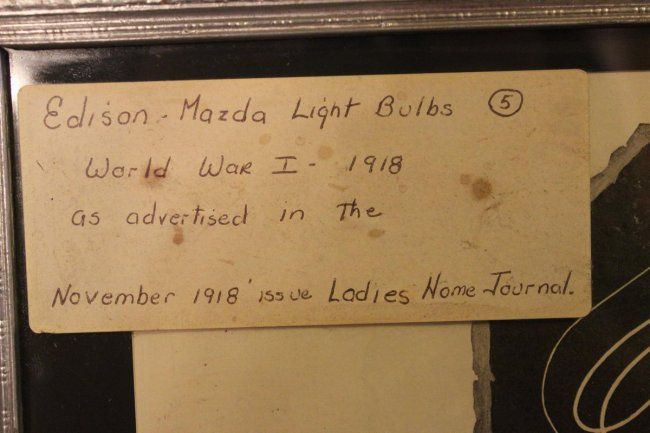 Edison - Mazda Light Bulbs 5
World War I - 1918
as advertised in the
November 1918 issue Ladies Home Journal.